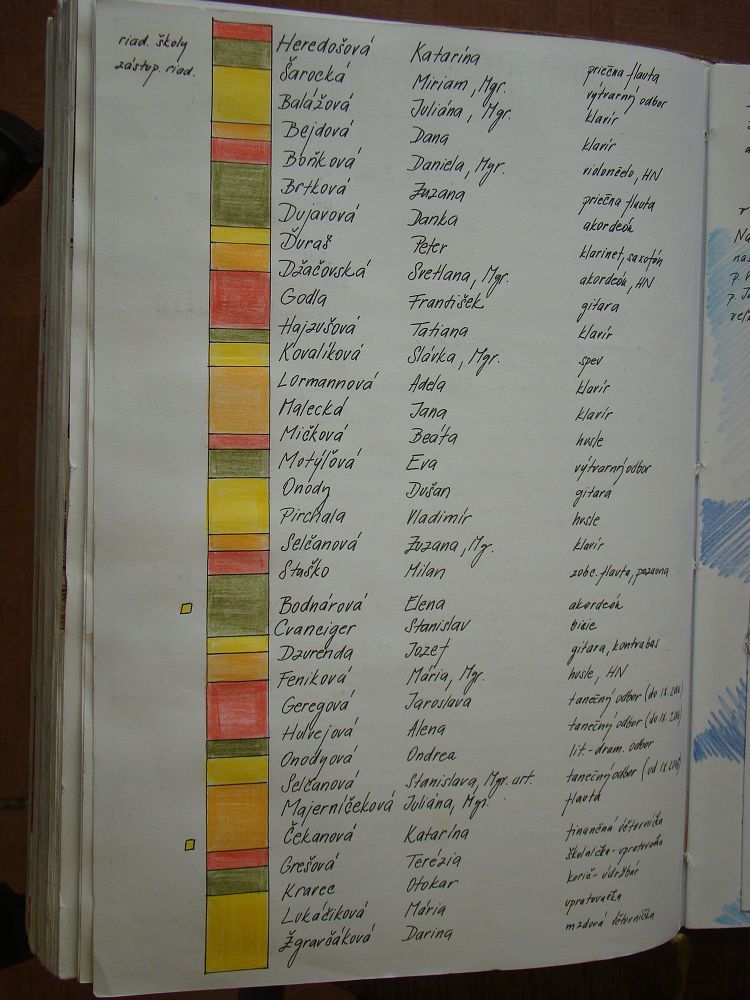 riad. školy
zástup. riad.
Heredošová Katarína priečna flauta
Šarocká Miriam, Mgr. výtvarný odbor
Balážová Juliána, Mgr. klavír
Bejdová Dana klavír
Boňková Daniela, Mgr. violončelo, HN
Brtková Zuzana priečna flauta
Dujavová Danka akordeón
Ďuraš Peter klarinet, saxofón
Džačovská Svetlana, Mgr. akordeón, HN
Godla František gitara
Hajzušová Tatiana klavír
Kovalíková Slávka, Mgr. spev
Lormannová Adela klavír
Malecká Jana klavír
Mičková Beáta husle
Motýľová Eva výtvarný odbor
Onody Dušan gitara
Pirchala Vladimír husle
Selčanová Zuzana, Mgr. klavír
Staško Milan zobc. flauta, pozauna
Bodnárová Elena akordeón
Cvaneiger Stanislav bicie
Dzurenda Jozef gitara, kontrabas
Feníková Mária, Mgr. husle, HN
Geregová Jaroslava tanečný odbor (do IX. 2006)
Hulvejová Alena tanečný odbor (do IX. 2006)
Onodyová Ondrea lit.-dram. odbor
Selčanová Stanislava, Mgr. art. tanečný odbor (od IX. 2007)
Majerníčeková Juliána, Mgr. flauta
Čekanová Katarína finančná účtovníčka
Grešová Terézia školníčka-upratovačka
Kravec Otokar kurič-údržbár
Lukáčiková Mária upratovačka
Žgravčáková Darina mzdová účtovníčka